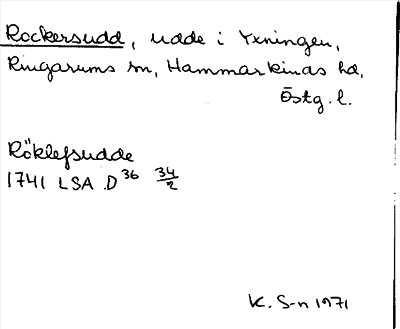 Rockersudd, udde i Yxningen,
Ringarums sn, Hammarkinds hd,
Östg. l.
Röklefsudde
1741 LSA D36 34/2
K. S-n 1971